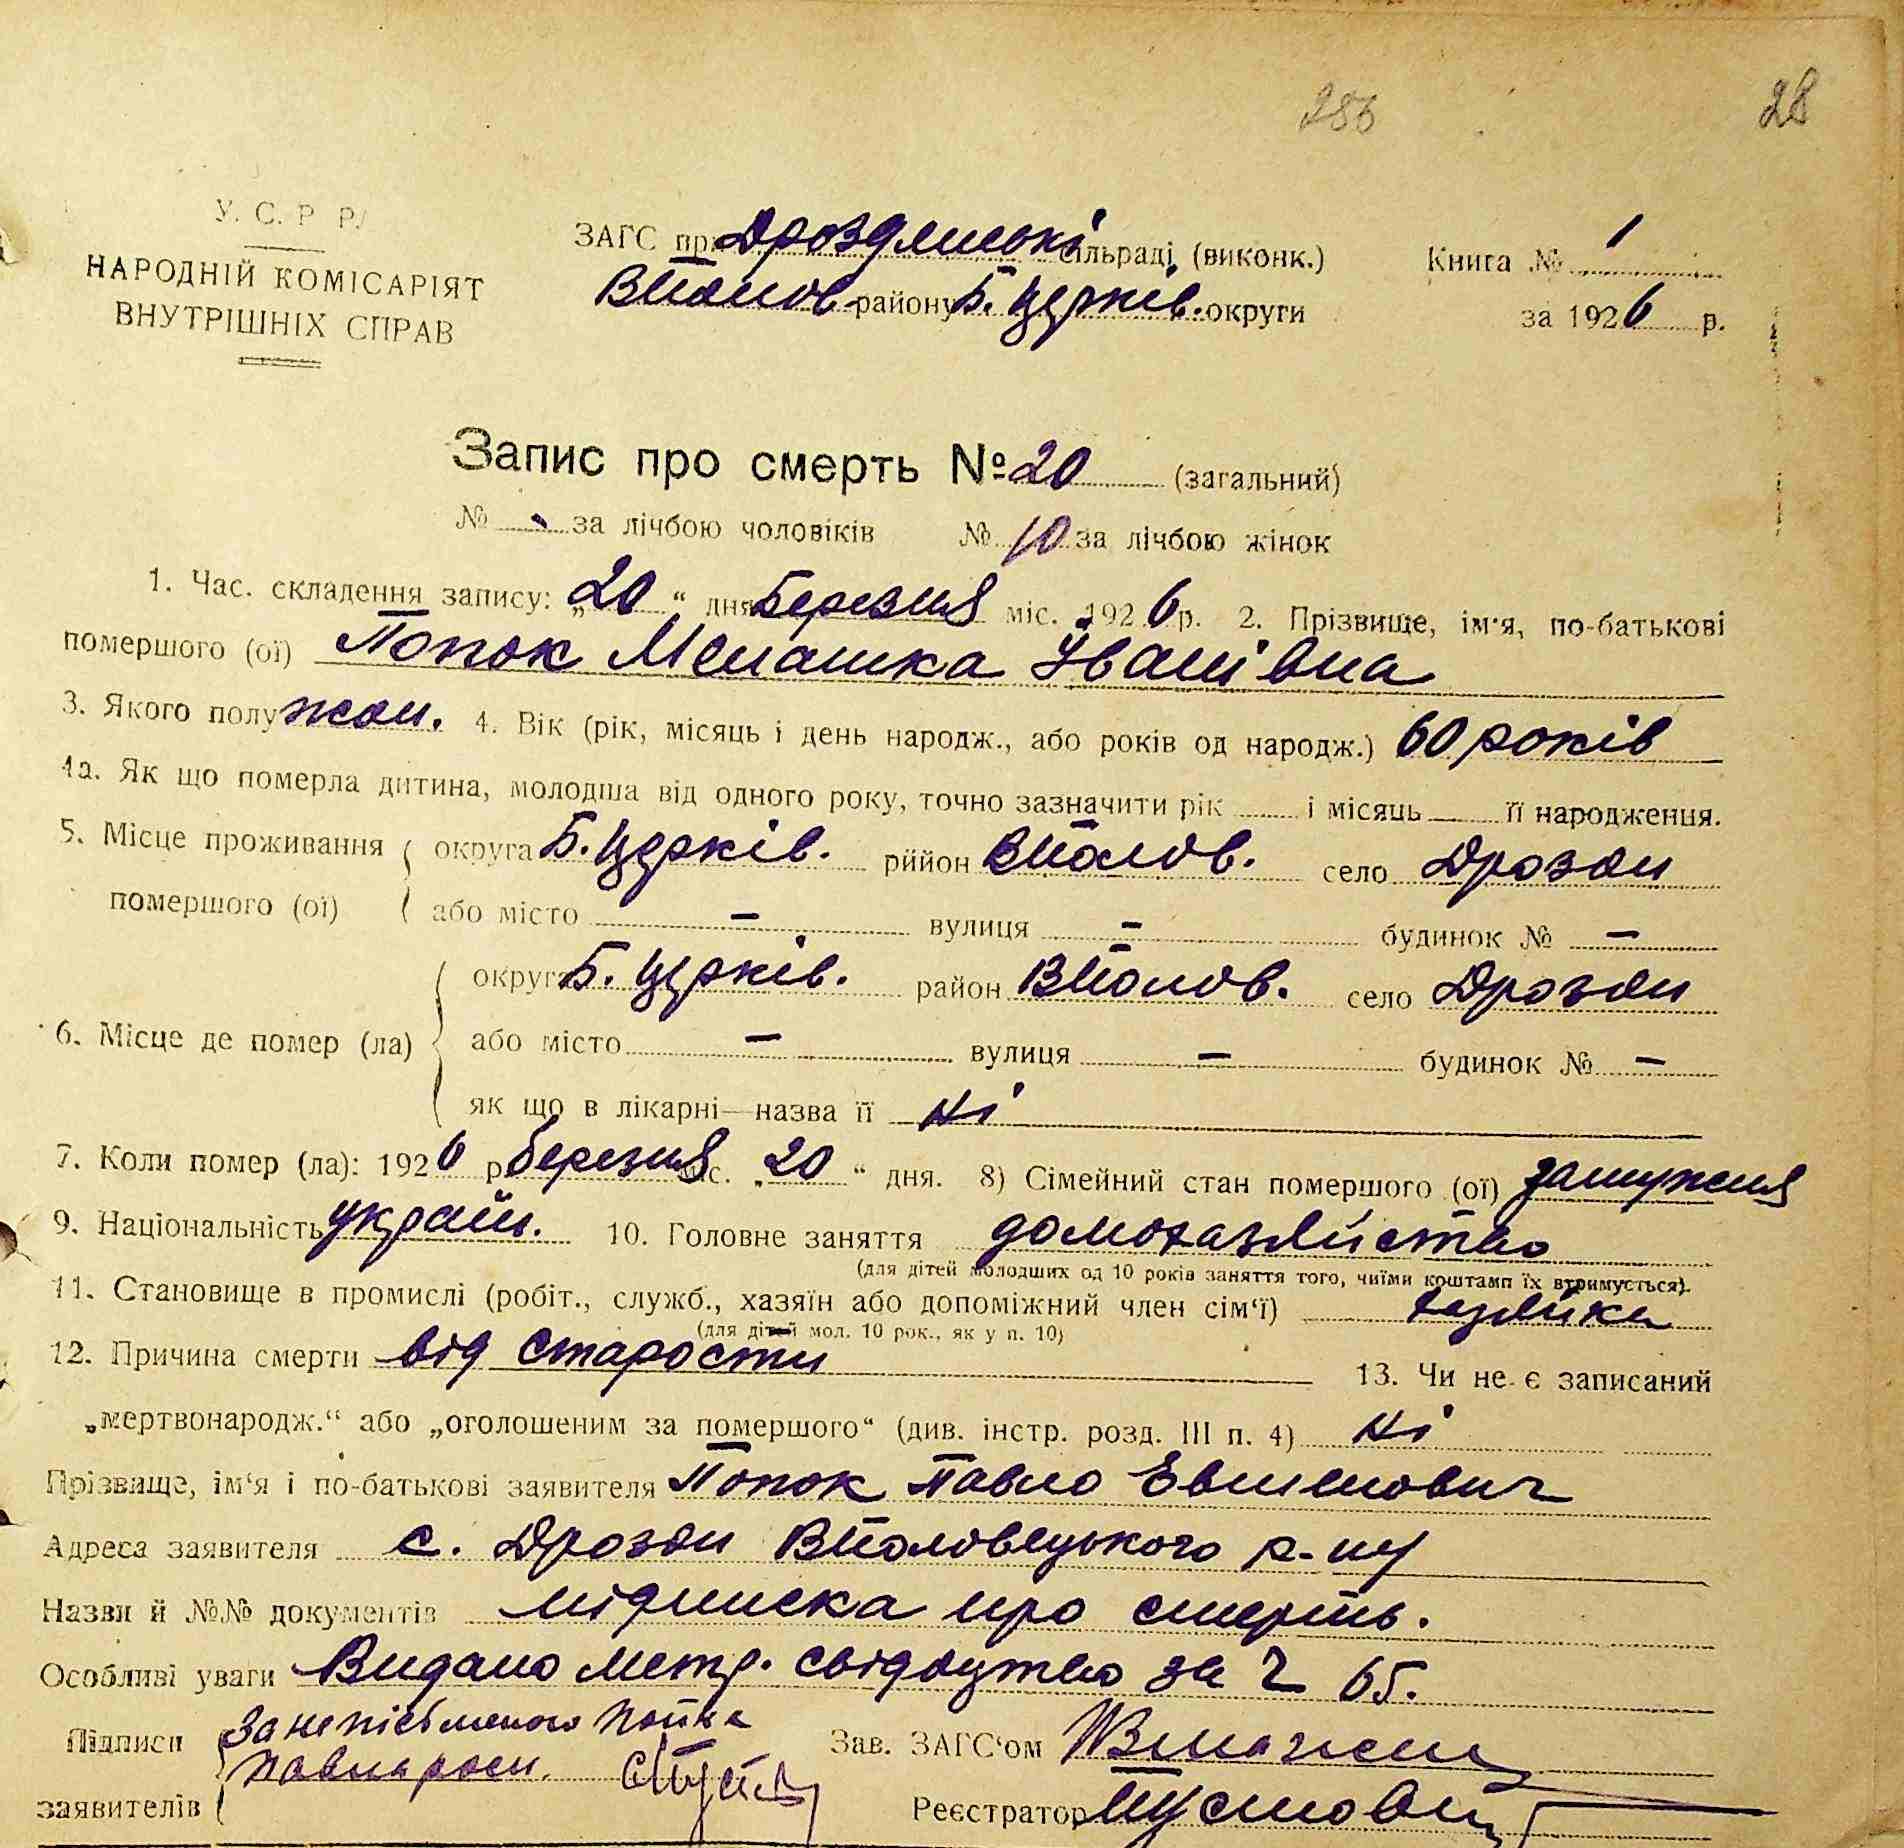 286
28
У. С. Р Р.
НАРОДНІЙ КОМІСАРІЯТ
ВНУТРІШНІХ СПРАВ
ЗАГС при Дроздянські сільраді (виконк.) Книга № 1
ВПолов району Б. Церків. округи за 1926 р.
Запис про смерть № 20 (загальний)
№ за лічбою чоловіків № 10 за лічбою жінок
1. Час. складення запису: „20“ дня Березня міс. 1926 р. 2. Прізвище, ім'я, по-батькові
помершого (ої) Попок Меланка Іванівна
3. Якого полу жон. 4. Вік (рік, місяць і день народж., або років од народж.) 60 років
4а. Як що померла дитина, молодша від одного року, точно зазначити рік і місяць її народження.
5. Місце проживання округа Б. Церків. рййон ВПолов. село Дрозди
помершого (ої) або місто - вулиця - будинок № -
округа Б. Церків. район ВПолов. село Дрозди
6. Місце де помер (ла) або місто - вулиця - будинок № -
як що в лікарні—назва її Ні
7. Коли помер (ла): 1926 р березня міс. „20“ дня. 8) Сімейний стан помершого (ої) замужня
9. Національність україн. 10. Головне заняття домохазяйство
(для дітей молодших од 10 років заняття того, чиїми коштамп їх втримується).
11. Становище в промислі (робіт., служб., хазяїн або допоміжний член сім'ї) хазяйка
(для дітей мол. 10 рок., як у п. 10)
12. Причина смерти від старости 13. Чи не є записаний
„мертвонародж.“ або „оголошеним за помершого“ (див. інстр. розд. III п. 4) Ні
Прізвище, ім'я і по-батькові заявителя Попок Павло
Адреса заявителя с. Дрозди ВПоловецького р-ну
Назви й №№ документів підписка про смерть.
Особливі уваги Видано метр. свідоцтво за Ч 65.
Підписи За неписьменого Попка
Павла росп. Зав. ЗАГС'ом
заявителів Реєстратор